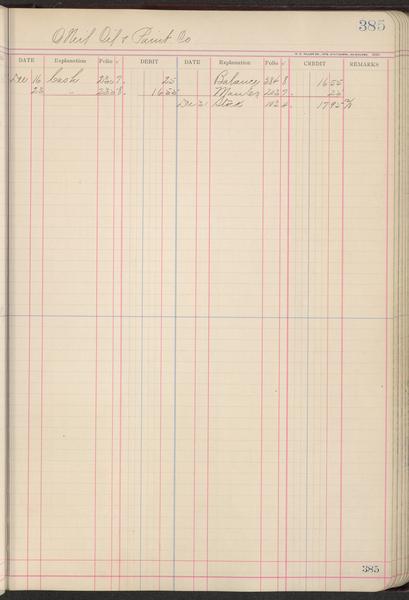 385
O'Neil Oil & Paint Co
DATE Explanation Folio ✓ DEBIT DATE Explanation Folio ✓ CREDIT REMARKS
Dec 16 Cash 2357. 25 Balance 384 8 1655
23 " 2358. 1655 25
Dec 31 Stock 1795
385